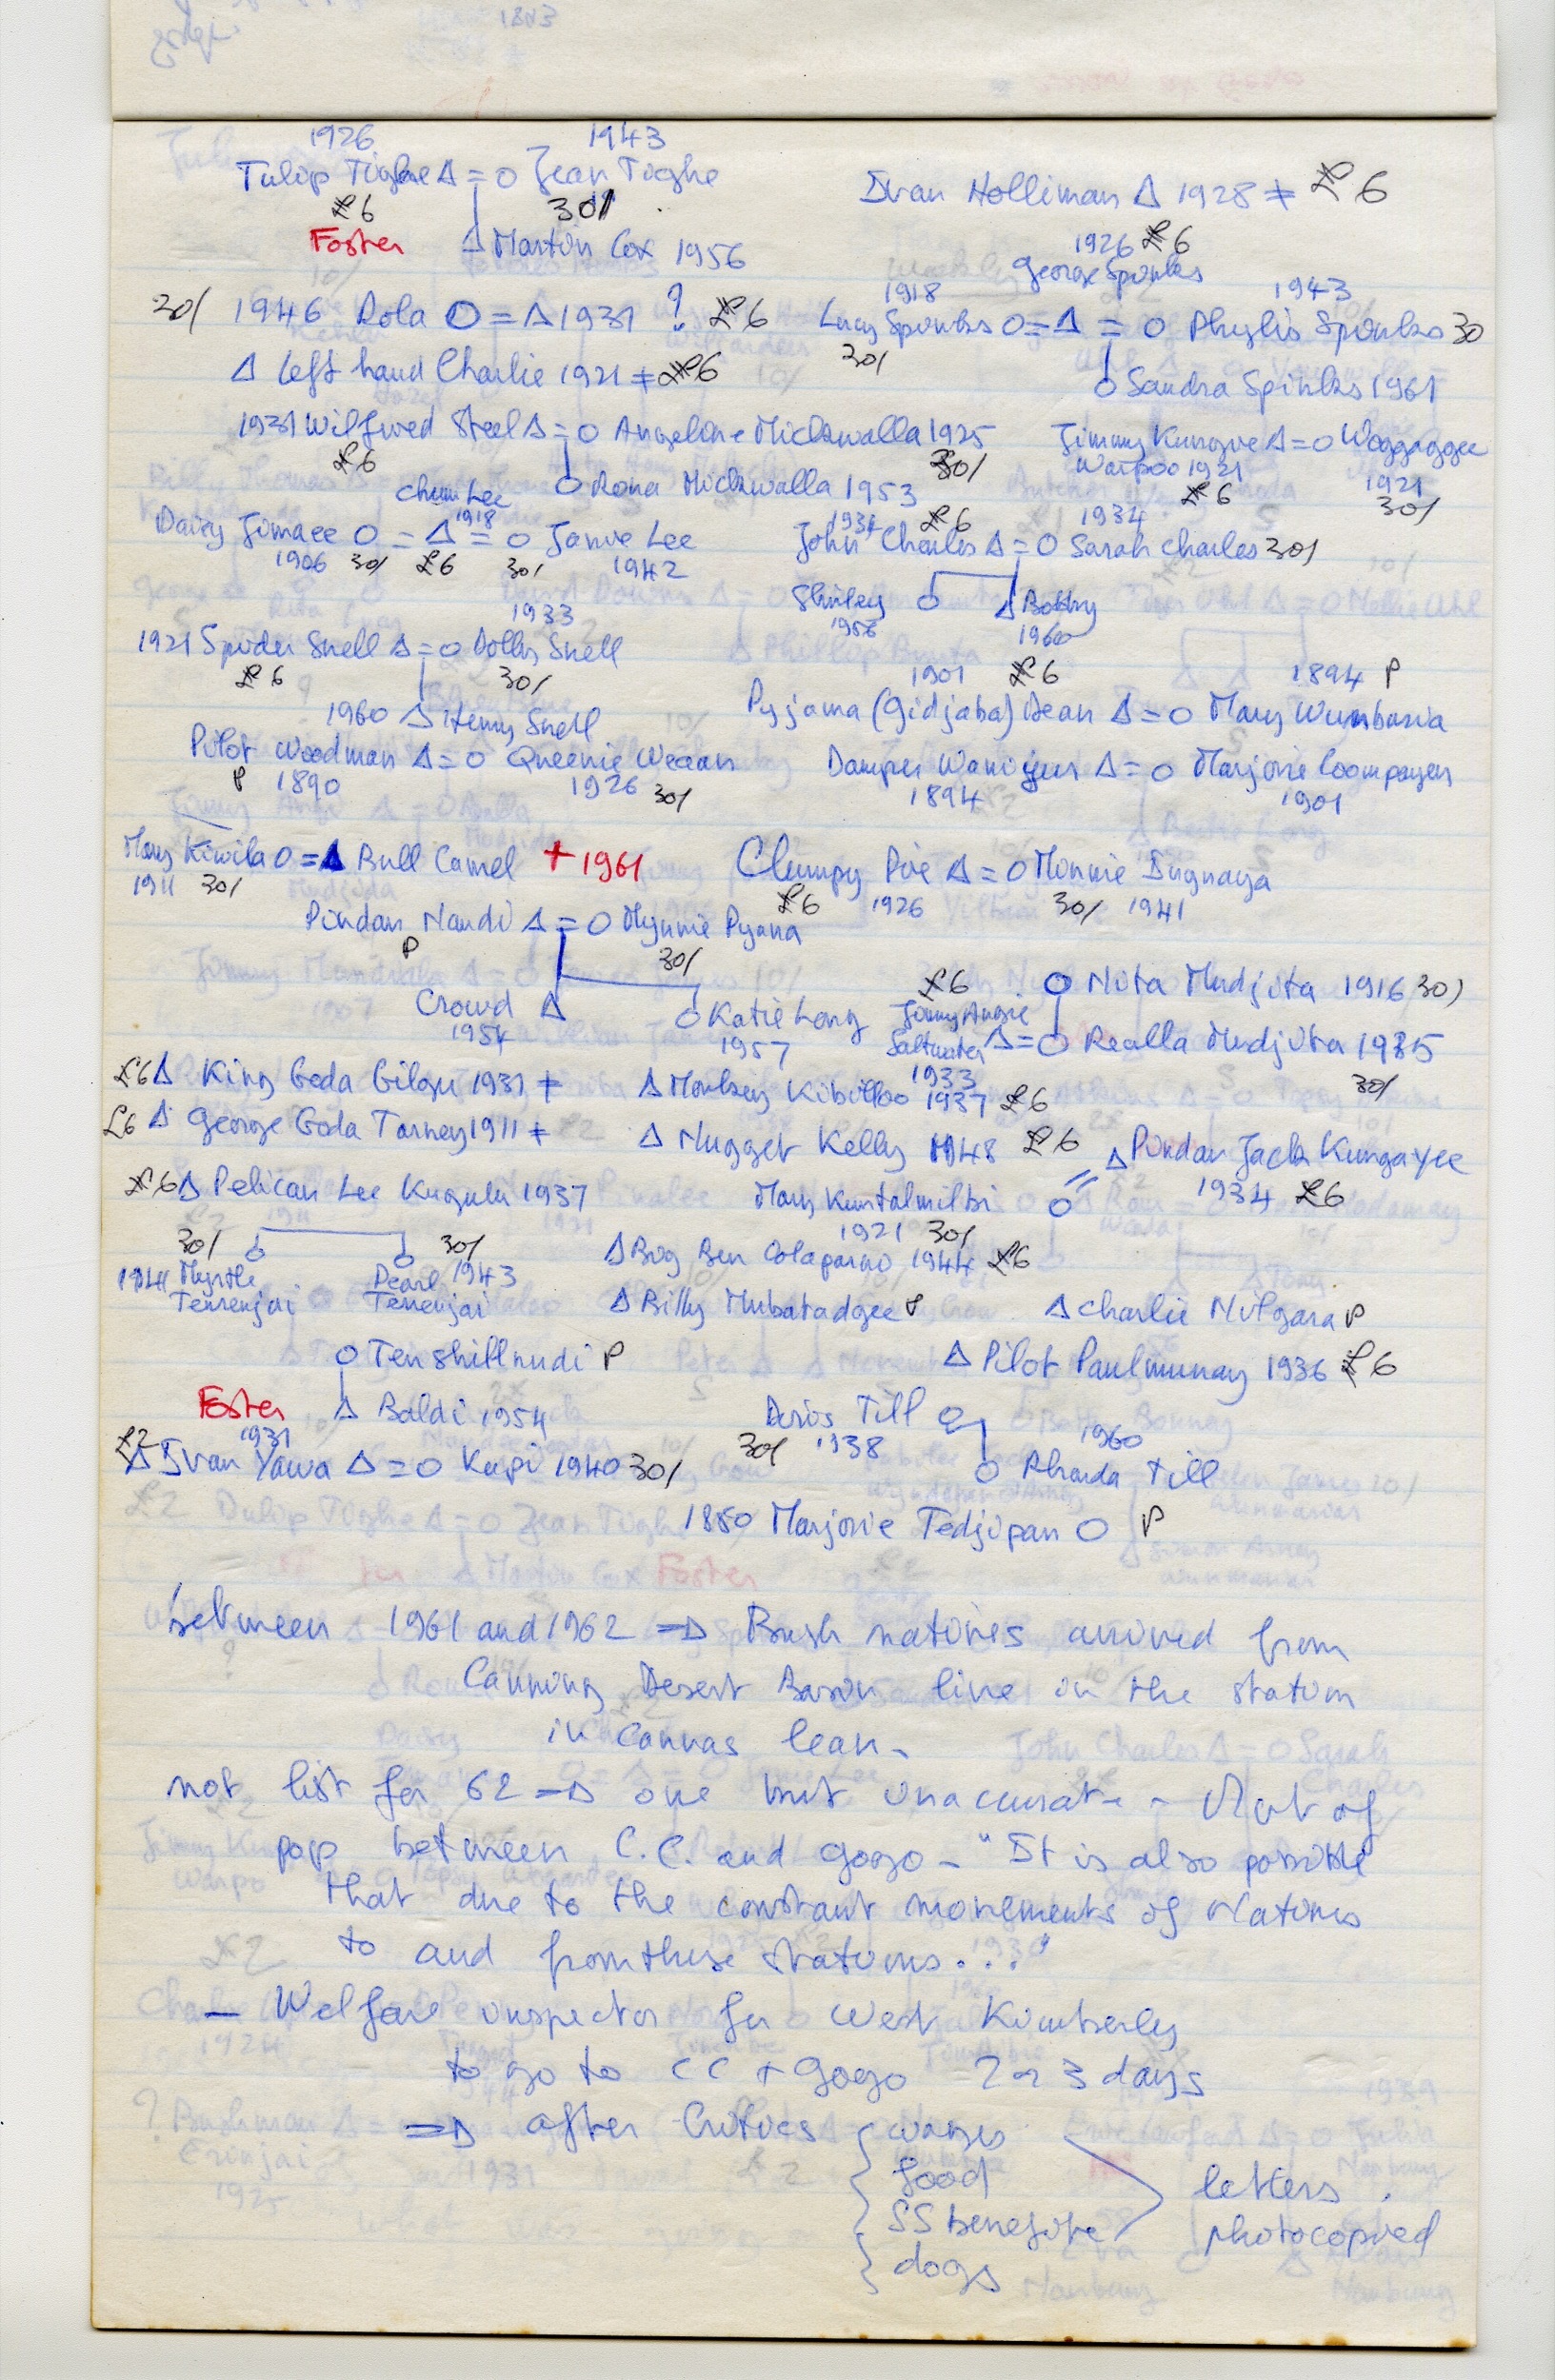 1926 1943
Tulip Tighe Δ = O Jean Tighe
£6 30/
Foster Δ Martin Cox 1956
Ivan Holliman Δ 1928 ≠ £6
1926 £6
George Spinks
30/ 1946 Dola O = Δ 1931 ? £6
1918 1943
Lucy Spinks O = Δ = O Phylis Spinks 30
30/
Δ Left hand Charlie 1921 ≠ £6
O Sandra Spinks 1961
1931 Wilfred Steel Δ = O Angeline Mickwalla 1925
£6 30/
O Rona Mickwalla 1953
Jimmy Kungve Δ = O Woggaggee
Warpoo 1921 1921
£6 30/
Chum Lee
1918
Daisy Jimaee O = Δ = O Janie Lee
1906 30/ £6 30/ 1942
1934 £6 1934
John Charles Δ = O Sarah Charles 30/
Shirley O Δ Bobby
1956 1960
1933
1921 Spider Snell Δ = O Dolly Snell
£6 30/
1960 Δ Henry Snell
1901 £6 1894 P
Pyjama (Gidjaba) Dean Δ = O Mary Wumbaria
Pilot Woodman Δ = O Queenie Weaan
P 1890 1926 30/
Damper Δ = O Marjorie Coompayen
1894 1901
Mary Kiwila O = Δ Bull Camel + 1961
1911 30/
Clumpy Pie Δ = O Minnie Dugnaya
£6 1926 30/ 1941
Pindan Nandi Δ = O Mynnie Pyana
P 30/
Crowd Δ O Katie Long
1954 1957
£6 O Nita Mudjita 1916 30/
Jimmy Angie
Saltwater Δ = O Realla Mudjita 1935
1933 30/
£6 Δ King Goda Gilgu 1931 ≠
Δ Monkey Kibilloo 1937 £6
£6 Δ George Goda Tarney 1911 ≠
Δ Nugget Kelly 1948 £6
Δ Pindan Jack Kungayee
1934 £6
£6 Δ Pelican Lee Kugulu 1937
Mary Kuntalmilbi O
1921 30/
30/ O O 30/
1941 Myrtle Pearl 1943
Tenrenjai Tenenjai
Δ Big Ben Colaparno 1944 £6
Δ Billy Mubatadgee P
Δ Charlie Nilgara P
O Tenshillnudi P
Δ Pilot Paulmunay 1936 £6
Foster Δ Baldi 1954
1931
£2 Δ Ivan Yawa Δ = O Kupi 1940 30/
Doris Till O
30/ 1938 1960
O Rhonda Till
1880 Marjorie Tedjipan O P
between 1961 and 1962 => Bush natives arrived from
Canning Desert Basin live in the station
in Canvas lean-
not list for 62 => one but inaccurate - Mvt of
pop between C.C. and gogo - "It is also possible
that due to the constant movements of Natives
to and from these stations..."
— Welfare inspector for West Kimberley
to go to CC + Gogo 2 or 3 days
=> after critics { wages
food
SS benefits
dogs
letters
photocopied